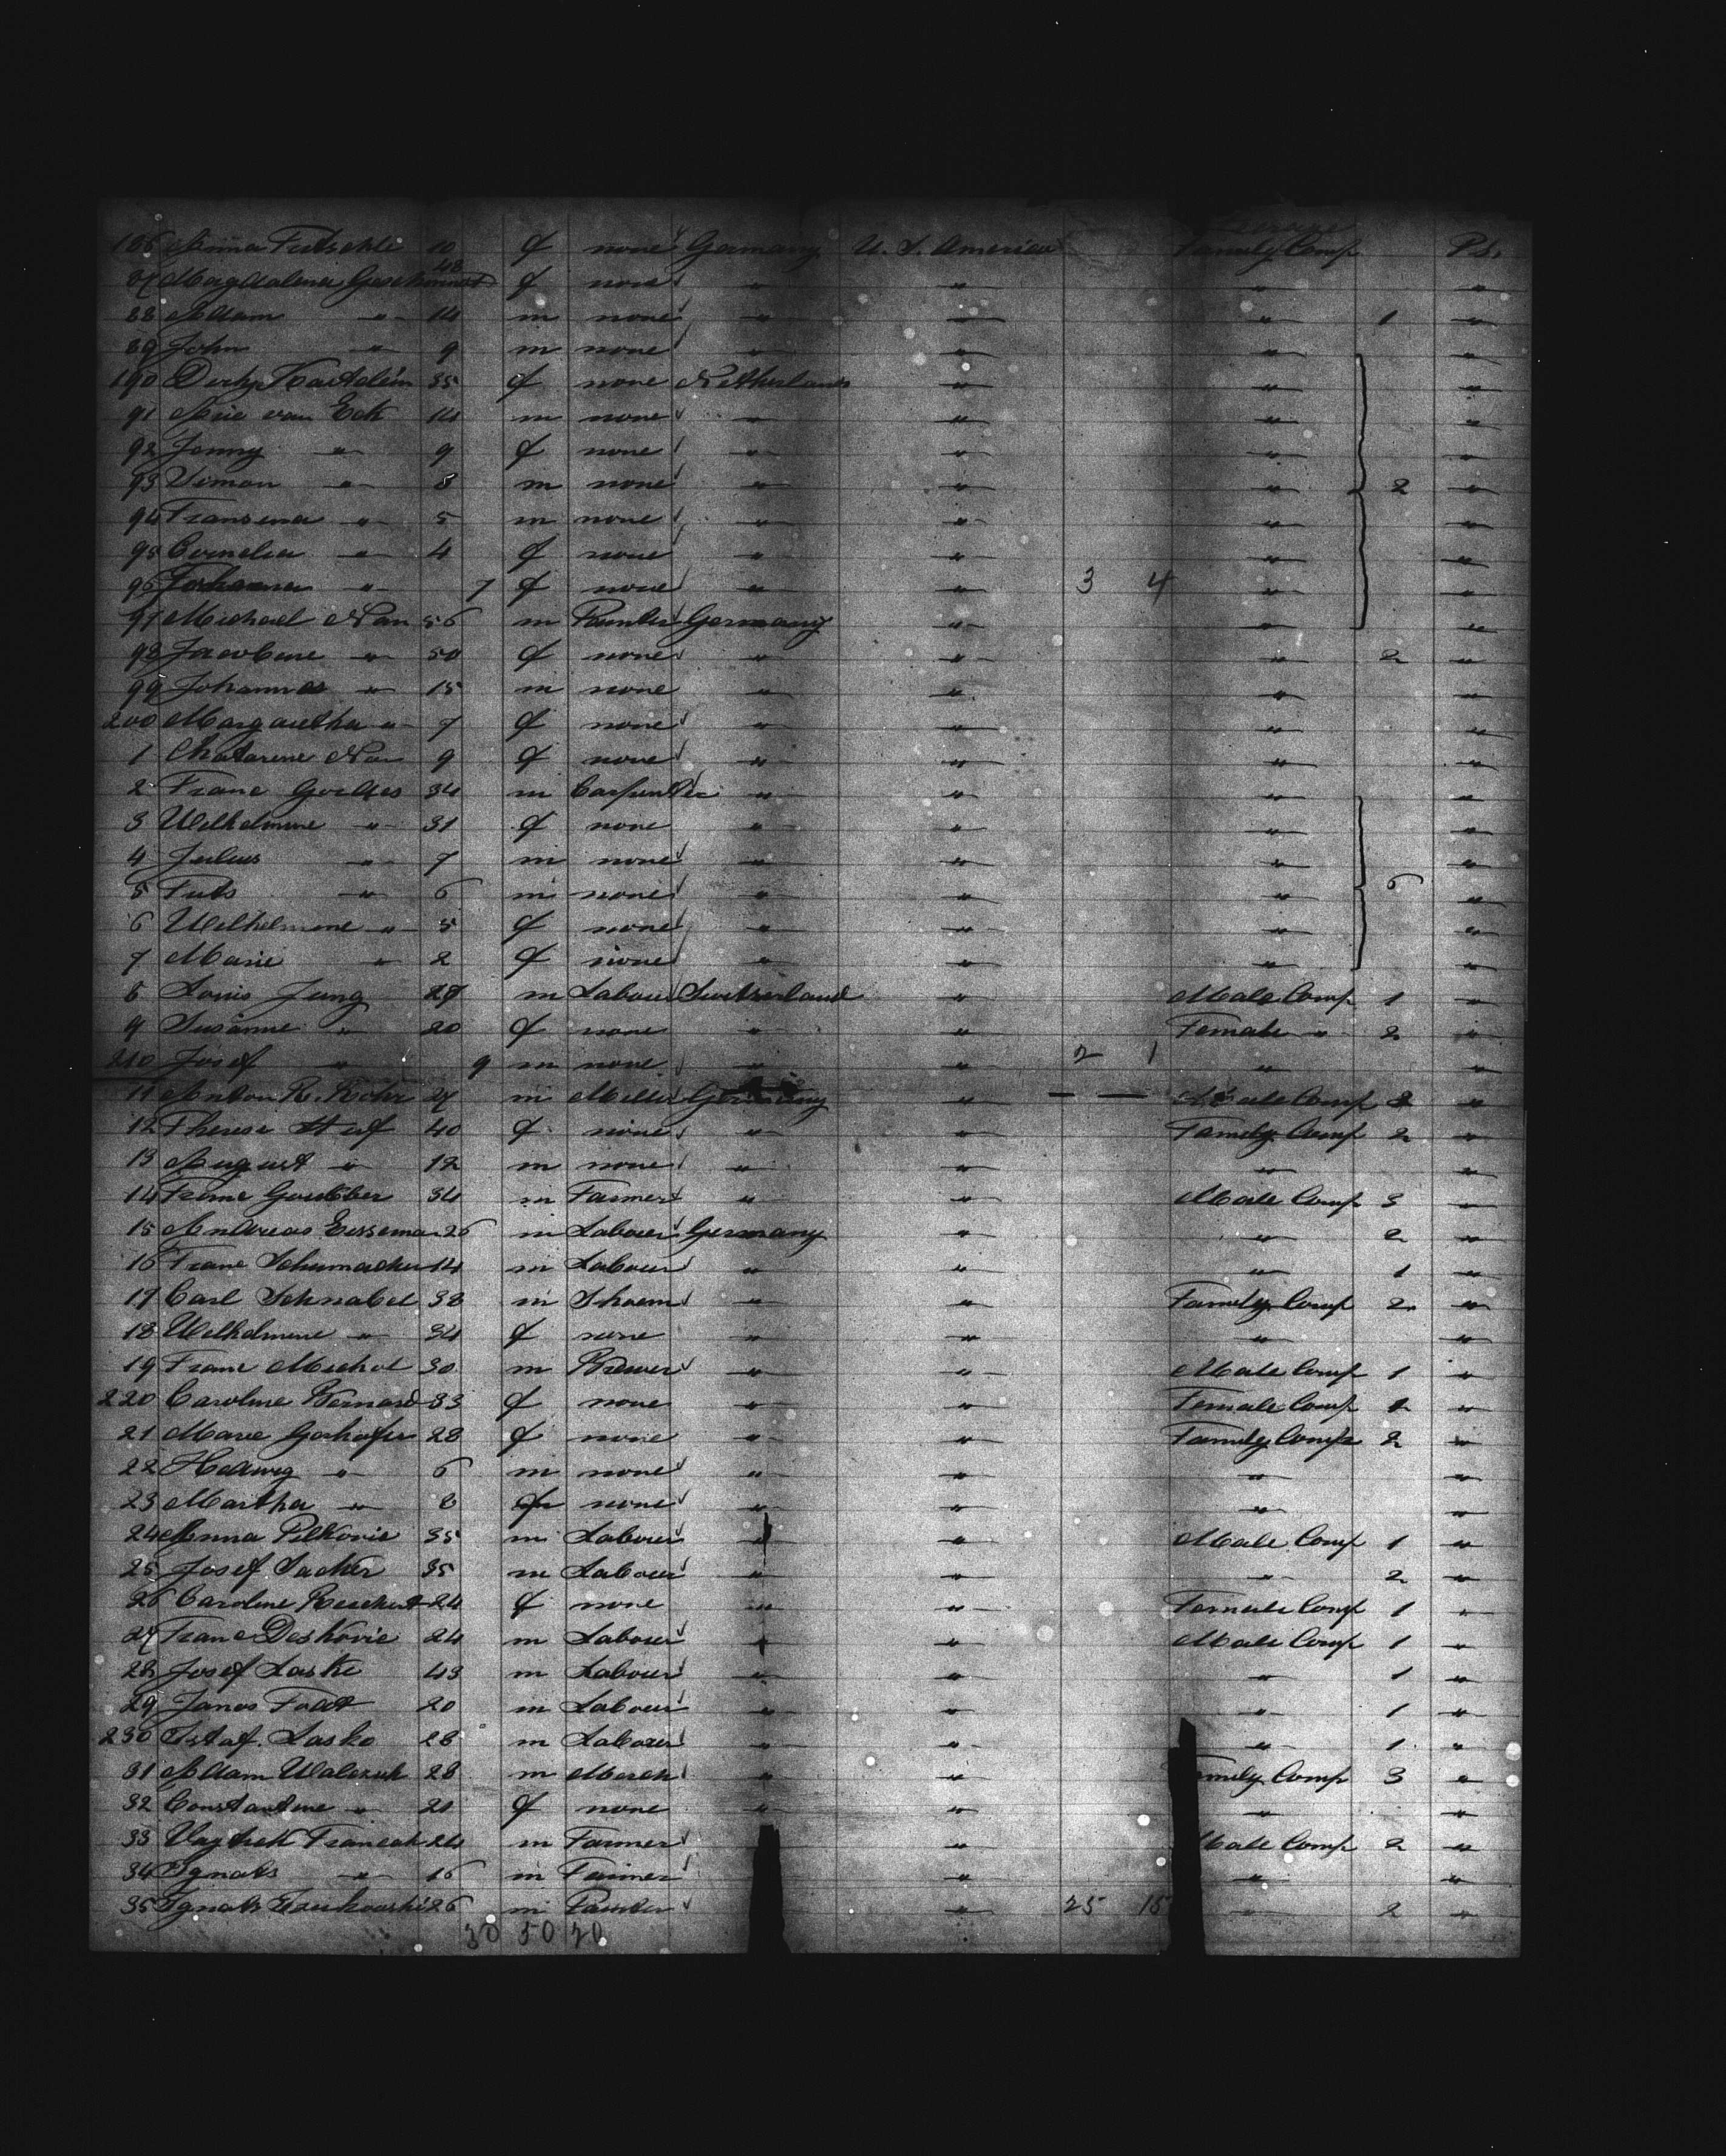 186 Anna Futschli 10 f none Germany U. S. America Family Comp P.S.
87 Magdalena 48 f none " " " "
88 Adam " 14 m none " " " 1 "
89 John " 9 m none " " " "
190 35 f none Netherlands " " "
91 Arie van Eck 14 m none " " " "
92 Jenny " 9 f none " " " "
93 Simon " 8 m none " " " 2 "
94 Fransena " 5 m none " " " "
95 Cornelia " 4 f none " " " "
96 Johanna " 7 f none " " 3 4 " "
97 Michael Nau 56 m Germany " " "
98 Jacobine " 50 f none " " " 2 "
99 Johannes " 15 m none " " " "
200 Margaretha " 7 f none " " " "
1 Chatarine Nau 9 f none " " " "
2 Franc Gerdes 34 m Carpenter " " " "
3 Wilhelmine " 31 f none " " " "
4 Julius " 7 m none " " " "
5 Futs " 6 m none " " " 6 "
6 Wilhelmine " 5 f none " " " "
7 Marie " 2 f none " " " "
8 Louis Jung 28 m Labour Switzerland " Male Comp 1 "
9 Susanne " 20 f none " " Female " 2 "
210 Josef " 9 m none " " 2 1 " "
11 Anton R. Rohr 27 m Miller Germany " Male Comp 2 "
12 Therese Huf 40 f none " " Family Comp 2 "
13 August " 12 m none " " " "
14 Franc 34 m Farmer " " Male Comp 3 "
15 Andreas Eissema 26 m Labour Germany " " 2 "
16 Franc Schumacher 14 m Labour " " " 1 "
17 Carl Schnabel 38 m Shoem " " Family Comp 2 "
18 Wilhelmine " 34 f none " " " "
19 Franc Michel 30 m Brewer " " Male Comp 1 "
220 Caroline Bernard 33 f none " " Female Comp 1 "
21 Marie Gerhofer 28 f none " " Family Comp 2 "
22 Hedwig " 6 m none " " " "
23 Martha " 8 f none " " " "
24 Anna Pilkovic 35 m Labour " " Male Comp 1 "
25 Josef Sacker 35 m Labour " " " 2 "
26 Caroline Reichert 24 f none " " Female Comp 1 "
27 Franc Deskovic 24 m Labour " " Male Comp 1 "
28 Josef Laski 43 m Labour " " " 1 "
29 Janos Fodt 20 m Labour " " " 1 "
230 Istaf. Lasko 28 m Labour " " " 1 "
31 Adam Walczuk 28 m Merch " " Family Comp 3 "
32 Constantine " 21 f none " " " "
33 24 m Farmer " Male Comp 2 "
34 Ignats " 16 m Farmer " " "
35 Ignats 26 m " 25 15 " 2 "
30 50 20